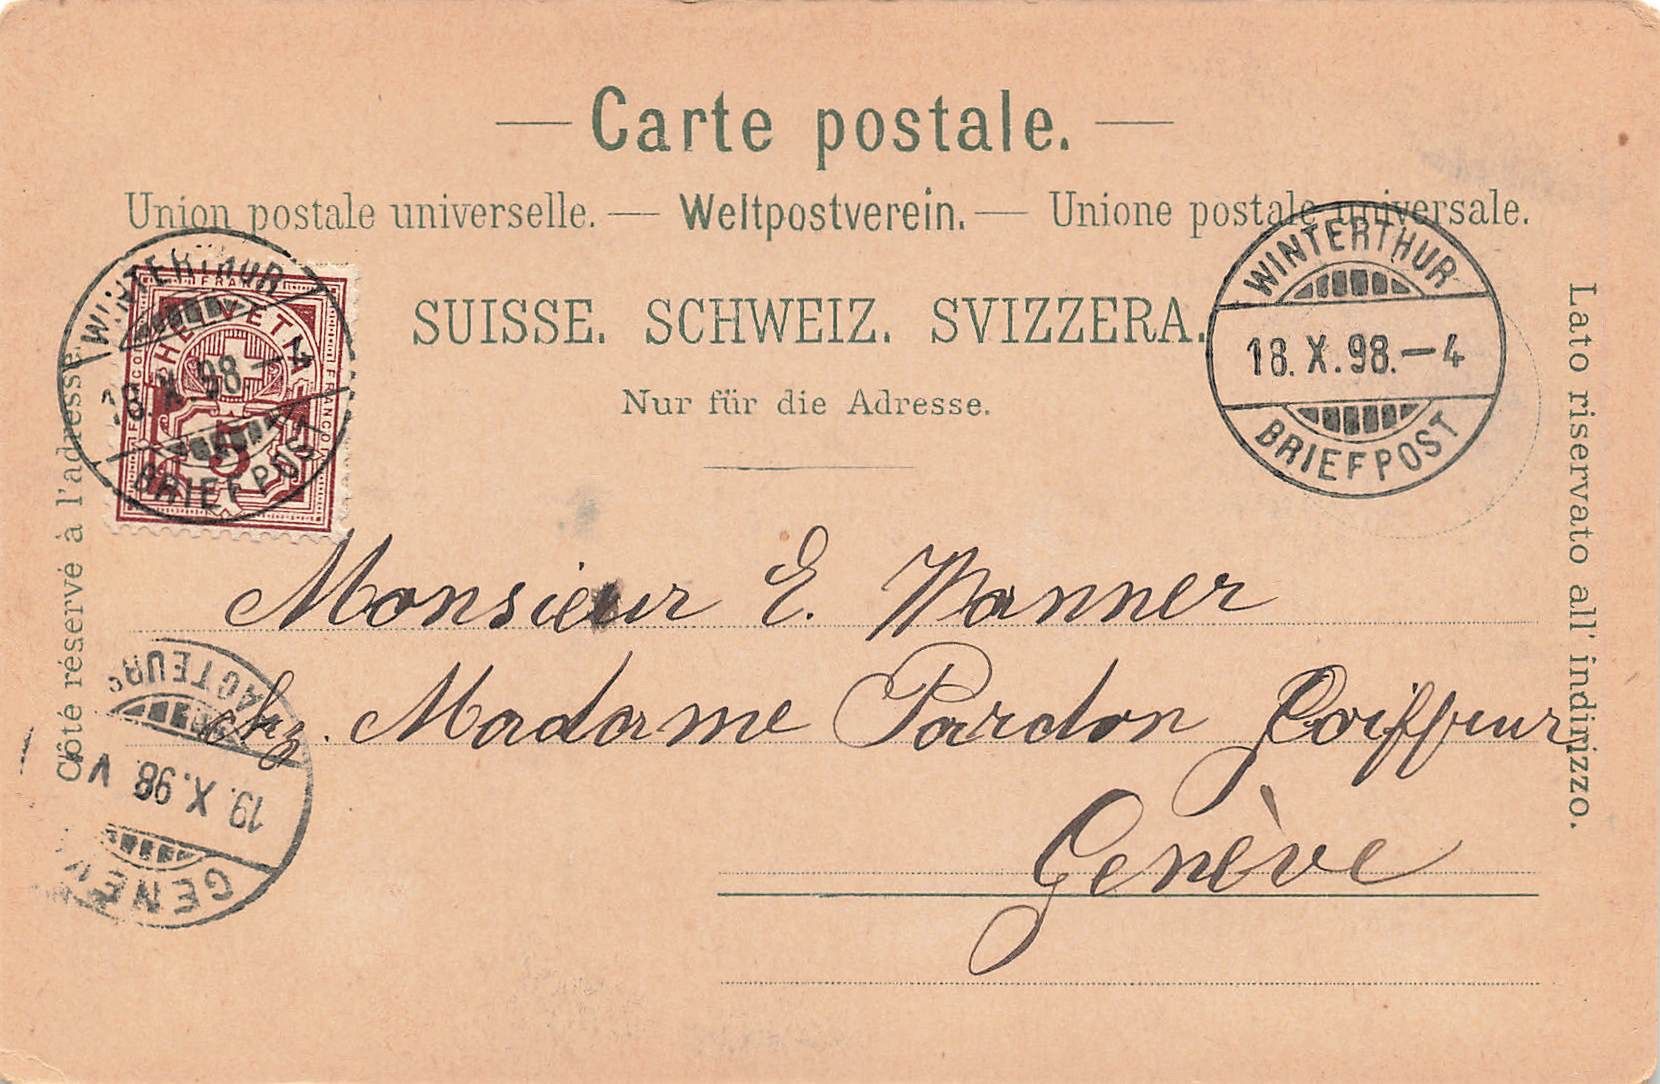 — Carte postale. —
Union postale universelle. — Weltpostverein. — Unione postale universale.
SUISSE. SCHWEIZ. SVIZZERA.
Nur für die Adresse.
Côté réservé à l'adresse.
Lato riservato all' indirizzo.
FRANCO
HELVETIA
5
WINTERTHUR
18. X. 98. — 4
BRIEFPOST
WINTERTHUR
18. X. 98. — 4
BRIEFPOST
Monsieur E. Wanner
chz. Madame Pardon Coiffeur
Genève
19. X. 98. V
GENEV